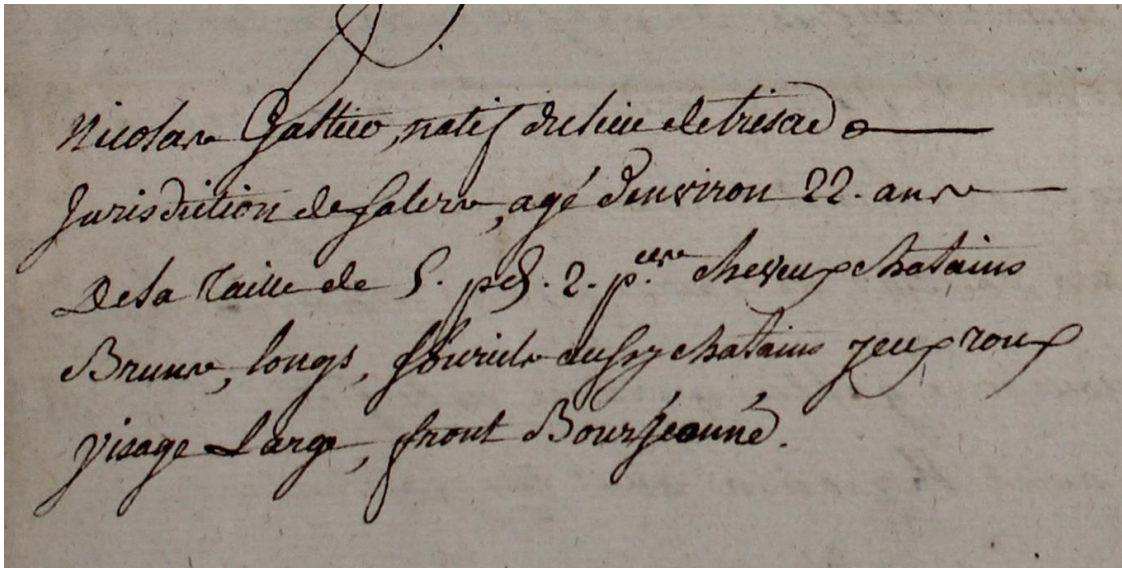 Nicolas Gattier, natif du lieu de trisac
Jurisdiction de Salers, agé d'environ 22. ans
De la Taille de 5. pds. 2. p.ces cheveux chatains
Bruns, longs, sourcils aussy chatains yeux roux
Visage Large, front Bourjeonné.